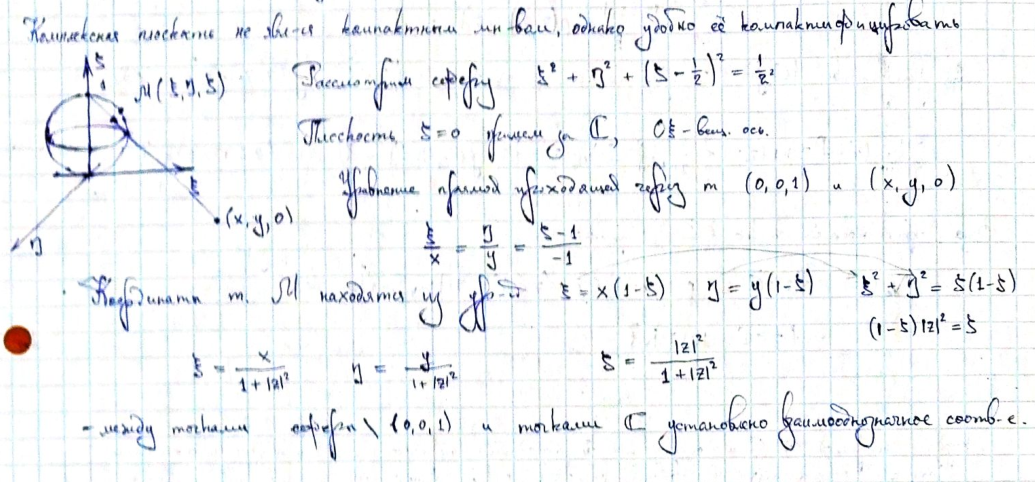 Комплексная плоскость не явл-ся компактным мн-вом, однако удобно её компактифицировать
ζ
1
M(ξ, η, ζ)
Рассмотрим сферу ξ² + η² + (ζ - 1/2)² = 1/2²
Плоскость ζ=0 примем за ℂ, Oξ - вещ. ось.
Уравнение прямой проходящей через т (0,0,1) и (x, y, 0)
ξ
(x, y, 0)
η
ξ/x = η/y = (ζ-1)/-1
Координаты т. M находятся из ур-й ξ = x(1-ζ) η = y(1-ζ) ξ² + η² = ζ(1-ζ)
(1-ζ)|z|² = ζ
ξ = x/(1+|z|²) η = y/(1+|z|²) ζ = |z|²/(1+|z|²)
- между точками сферы \ (0,0,1) и точками ℂ установлено взаимооднозначное соотв-е.